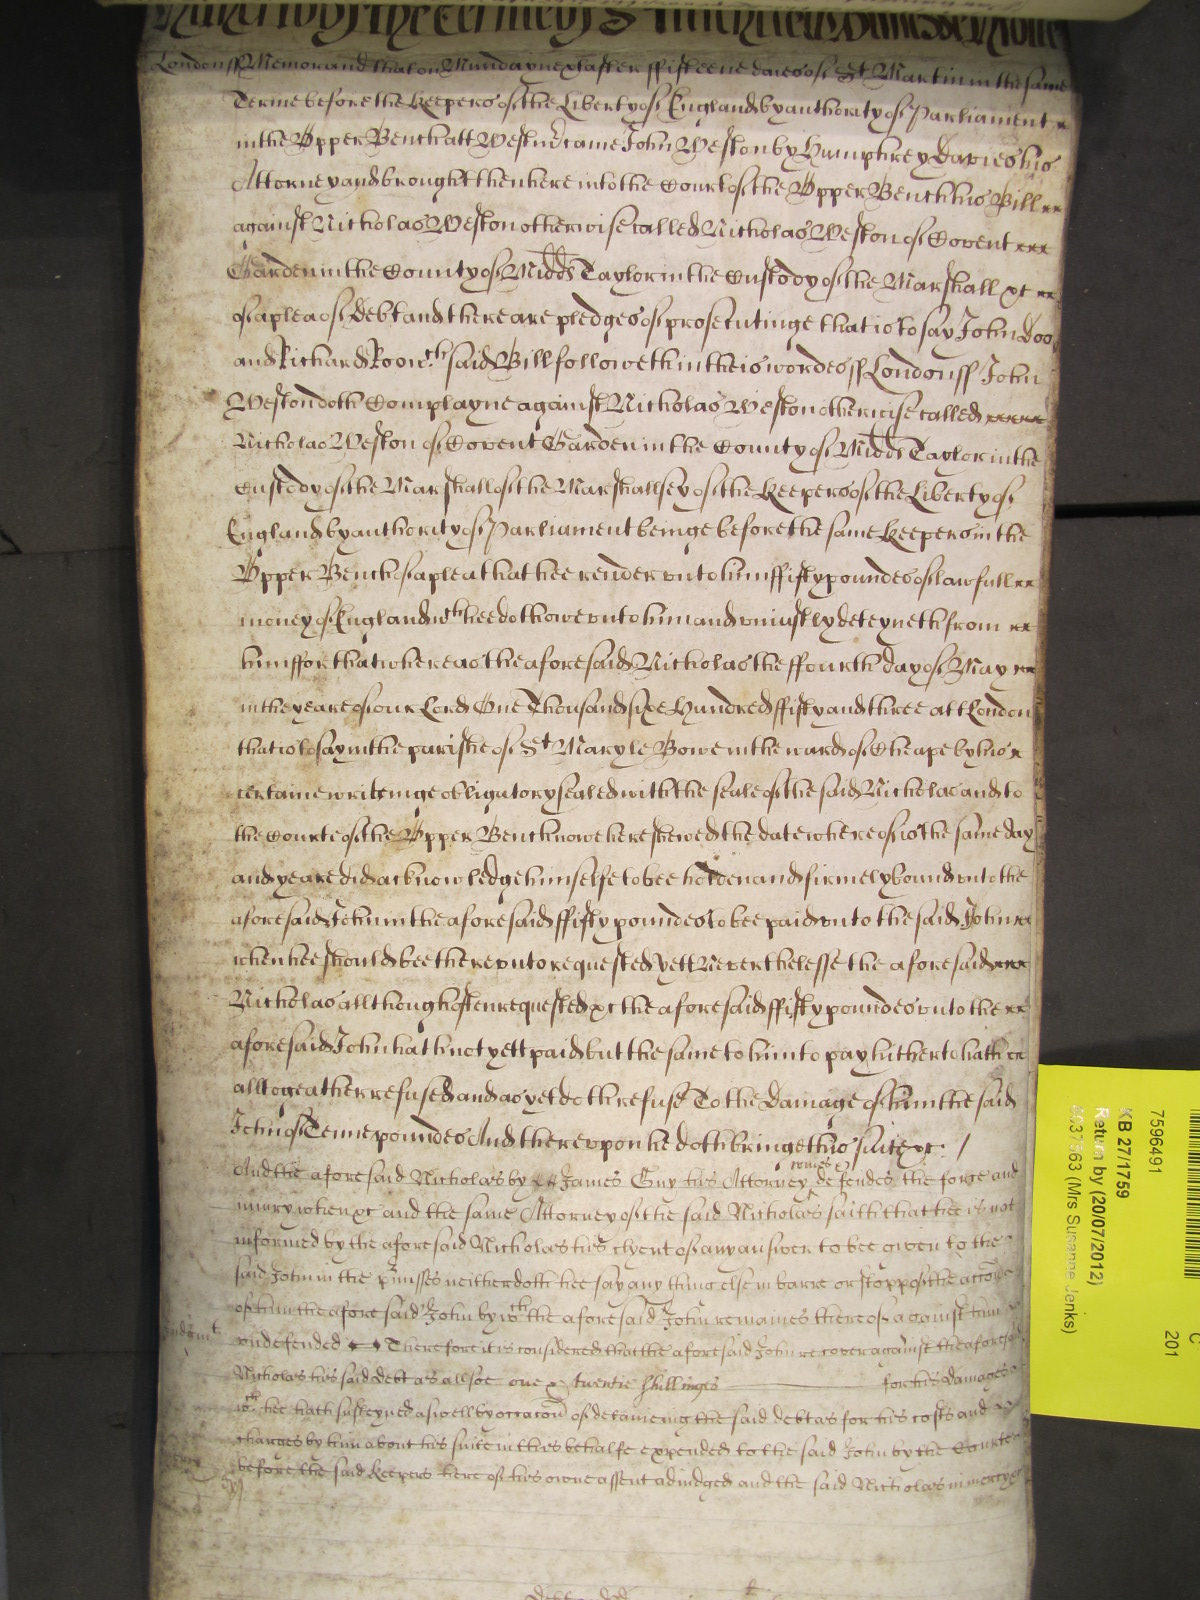 London ss Memorand that on Munday next after ffifteene daies of St Martin in the same
Terme before the Keepers of the Liberty of England by authority of Parliament
in the Upper Bench att Westm̃ came John Weston by Humphrey Davies his
Attorney and brought then here into the Court of the Upper Bench his Bill
against Nicholas Weston otherwise called Nicholas Weston of Covent
Garden in the County of Midds Taylor in the Custody of the Marshall &c
of a plea of Debt and there are pledges of prosecutinge that is to say John Doo
and Richard Roo wch said Bill followeth in theis wordes ss London ss John
Weston doth Complayne against Nicholas Weston otherwise called
Nicholas Weston of Covent Garden in the County of Midds Taylor in the
Custody of the Marshall of the Marshallsey of the Keepers of the Liberty of
England by authority of Parliament beinge before the same Keepers in the
Upper Bench of a plea that hee render unto him ffifty poundes of lawfull
money of England wch hee doth owe unto him and uniustly deteyneth from
him ffor that whereas the aforesaid Nicholas the ffourth day of May
in the yeare of our Lord One Thousand sixe Hundred ffifty and three att London
that is to say in the parishe of St Mary le Bowe in the ward of Cheape by his
certaine writeinge obligatory sealed with the seale of the said Nicholas and to
the Courte of the Upper Bench nowe here shewed the date whereof is the same day
and yeare did acknowledge himselfe to bee holden and firmely bound unto the
aforesaid John in the aforesaid ffifty poundes to bee paid unto the said John
when hee should bee thereunto requested yett Neverthelesse the aforesaid
Nicholas allthough often requested &c the aforesaid ffifty poundes unto the
aforesaid John hath not yett paid but the same to him to pay hitherto hath
alltogeather refused and as yet doth refuse To the Damage of him the said
John of Tenne poundes And thereupon he doth bringe this suite &c /
And the aforesaid Nicholas by James Guy his Attorney comes & defendes the force and
iniury when &c and the same Attorney of the said Nicholas saith that hee is not
informed by the aforesaid Nicholas his clyent of any answer to bee given to the
said John in the p̃misses neither doth hee say any thing else in barre or stopp of the accon
of him the aforesaid John by wch the aforesaid John remaines thereof against him
Judgmt undefended Therefore it is considered that the aforesaid John recover against the aforesaid
Nicholas his said debt as allsoe twentie shillinges for his damages
wch hee hath susteyned aswell by occacon of detaineing the said debt as for his costs and
charges by him about his suite in this behalfe expended to the said John by the Courte
before the said Keepers here of his owne assent adiudged and the said Nicholas in mercy &c
7596491
KB 27/1759
Return by (20/07/2012)
(Mrs Susanne Jenks)
201